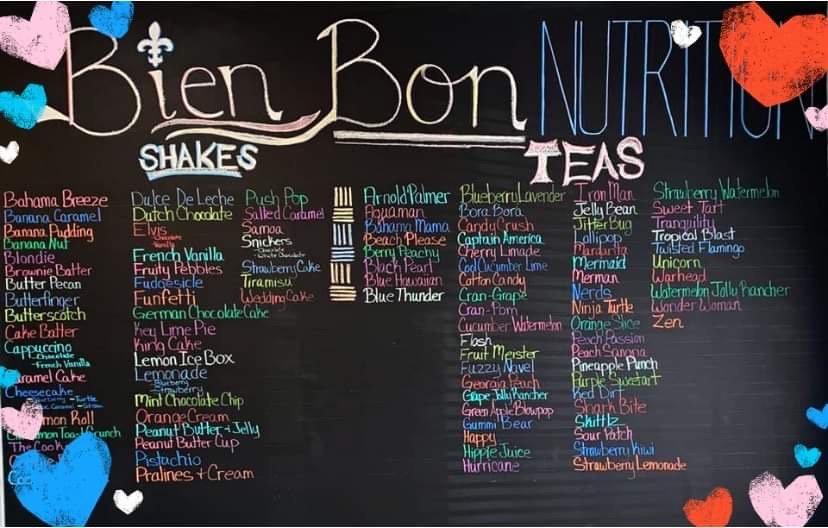 Bien Bon NUTRITION
SHAKES
Bahama Breeze
Banana Caramel
Banana Pudding
Banana Nut
Blondie
Brownie Batter
Butter Pecan
Butterfinger
Butterscotch
Cake Batter
Cappuccino
- Chocolate
- French Vanilla
Caramel Cake
Cheesecake
- Turtle
Toast Crunch
Dulce De Leche
Dutch Chocolate
Elvis
- Chocolate
- Vanilla
French Vanilla
Fruity Pebbles
Fudgesicle
Funfetti
German Chocolate Cake
Key Lime Pie
King Cake
Lemon Ice Box
Lemonade
- Blueberry
- Strawberry
Mint Chocolate Chip
Orange Cream
Peanut Butter + Jelly
Peanut Butter Cup
Pistachio
Pralines + Cream
Push Pop
Salted Caramel
Samoa
Snickers
- Chocolate
- White Chocolate
Strawberry Cake
Tiramisu
Wedding Cake
TEAS
Arnold Palmer
Aquaman
Bahama Mama
Beach Please
Berry Peachy
Black Pearl
Blue Hawaiian
Blue Thunder
Blueberry Lavender
Bora Bora
Candy Crush
Captain America
Cherry Limade
Cool Cucumber Lime
Cotton Candy
Cran-Grape
Cran-Pom
Cucumber Watermelon
Flash
Fruit Meister
Fuzzy Navel
Georgia Peach
Grape Jolly Rancher
Green Apple Blowpop
Gummi Bear
Happy
Hippie Juice
Hurricane
Iron Man
Jelly Bean
Jitter Bug
Lollipop
Mardarita
Mermaid
Merman
Nerds
Ninja Turtle
Orange Slice
Peach Passion
Peach Sangria
Pineapple Punch
Purple Sweetart
Red Dirt
Shark Bite
Skittlz
Sour Patch
Strawberry Kiwi
Strawberry Lemonade
Strawberry Watermelon
Sweet Tart
Tranquiliti
Tropical Blast
Twisted Flamingo
Unicorn
Warhead
Watermelon Jolly Rancher
Wonder Woman
Zen